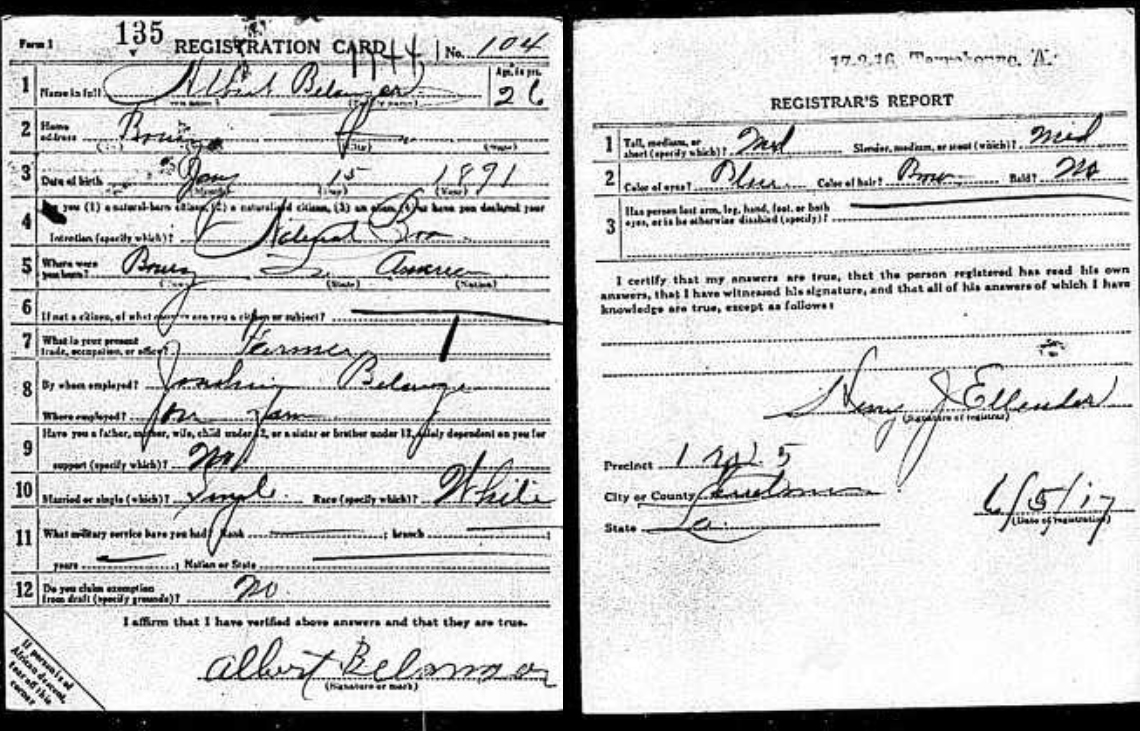 Form 1 135 REGISTRATION CARD No. 104
1 Name in full Albert Belanger Age, in yrs. 26
(Given name) (Family name)
2 Home address Bourg La
(No.) (City) (State)
3 Date of birth Jany 15 1891
(Month) (Day) (Year)
4 Are you (1) a natural-born citizen, (2) a naturalized citizen, (3) an alien, (4) or have you declared your
intention (specify which)? Natural Born
5 Where were you born? Bourg La America
(Town) (State) (Nation)
6 If not a citizen, of what country are you a citizen or subject?
7 What is your present trade, occupation, or office? Farmer
8 By whom employed? Belanger
Where employed? on farm
9 Have you a father, mother, wife, child under 12, or a sister or brother under 12, solely dependent on you for
support (specify which)? No
10 Married or single (which)? Single Race (specify which)? White
11 What military service have you had? Rank ; branch ;
years ; Nation or State
12 Do you claim exemption from draft (specify grounds)? No
I affirm that I have verified above answers and that they are true.
Albert Belanger
(Signature or mark)
If person is of
African descent,
tear off this
corner
17-2-16 Terrebonne, A.
REGISTRAR'S REPORT
1 Tall, medium, or short (specify which)? Med Slender, medium, or stout (which)? Med
2 Color of eyes? Blue Color of hair? Brown Bald? No
3 Has person lost arm, leg, hand, foot, or both
eyes, or is he otherwise disabled (specify)?
I certify that my answers are true, that the person registered has read his own
answers, that I have witnessed his signature, and that all of his answers of which I have
knowledge are true, except as follows:
Henry J Ellender
(Signature of registrar)
Precinct 1 5
City or County
State La.
6/5/17
(Date of registration)